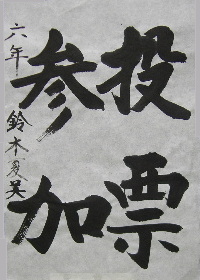 投票
参加
六年 鈴木夏美